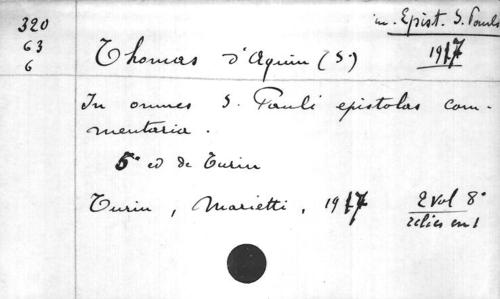 320
63
6
in. Epist. S. Pauli
Thomas d'Aquin (S.)
1917
In omnes S. Pauli epistolas com-
mentaria.
5ᵉ ed de Turin
Turin, Marietti, 1917
2 vol 8°
reliés en 1